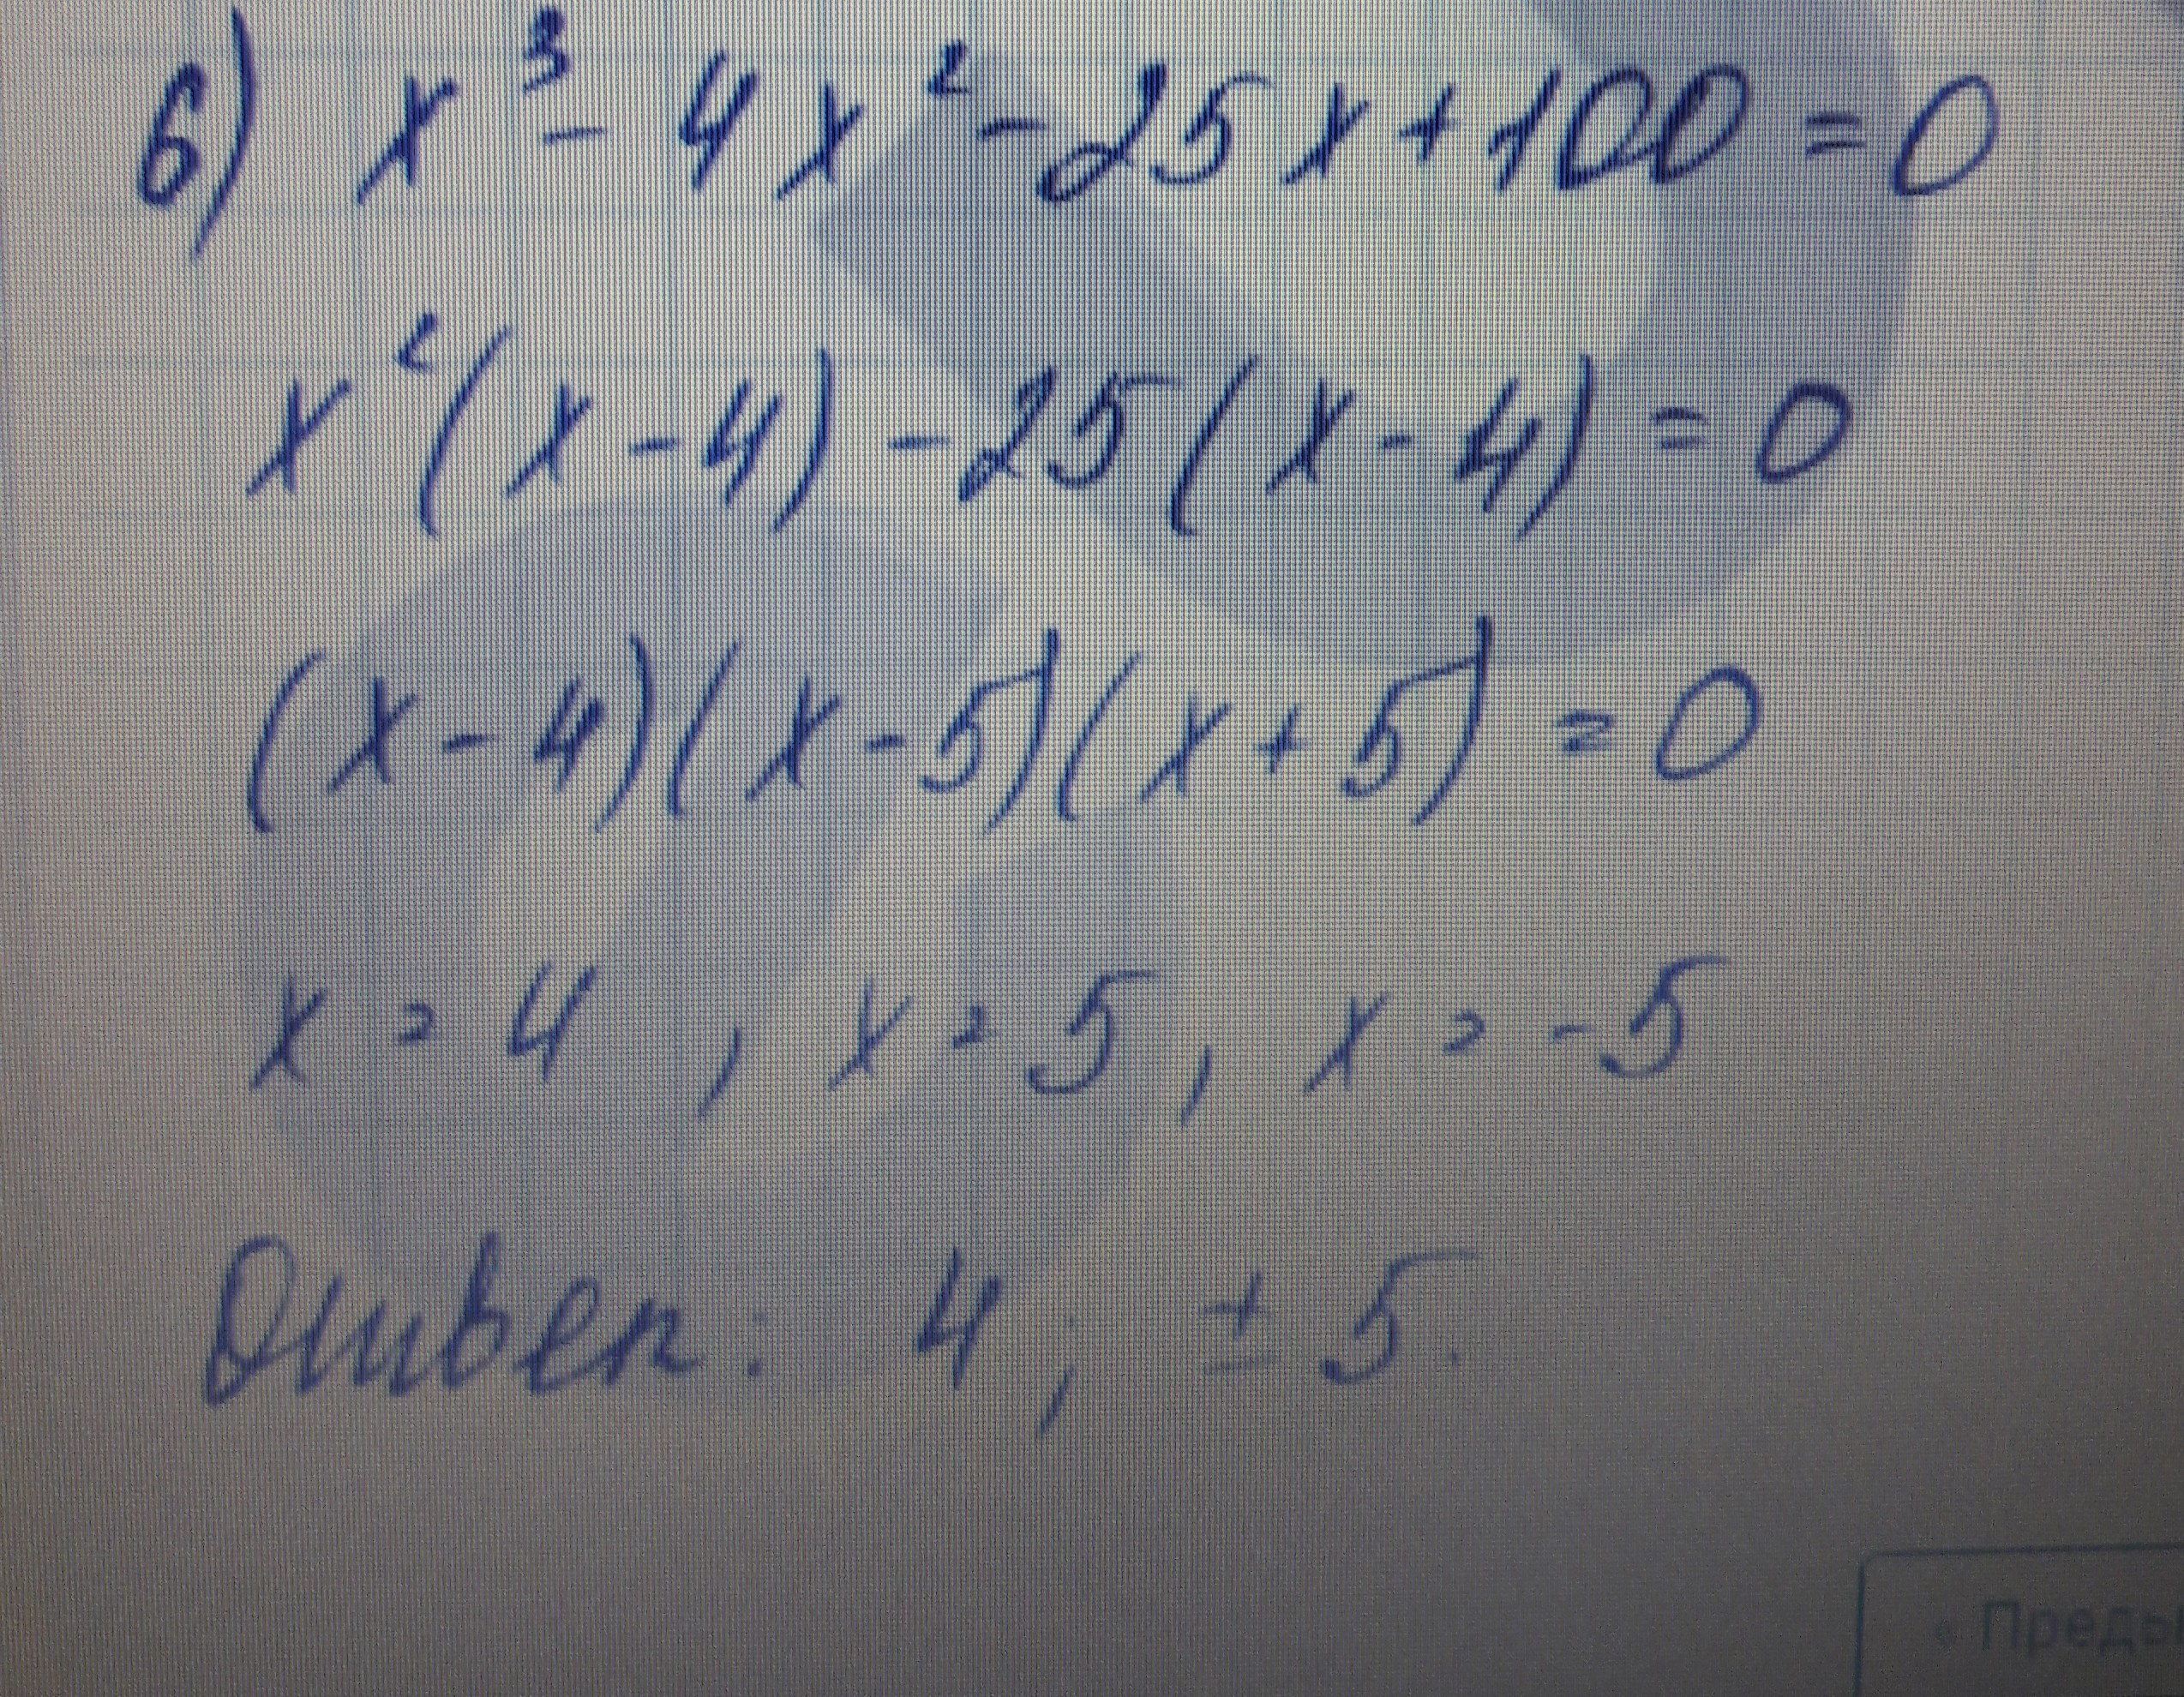 б) x³ - 4x² - 25x + 100 = 0
x²(x - 4) - 25(x - 4) = 0
(x - 4)(x - 5)(x + 5) = 0
x = 4, x = 5, x = -5
Ответ: 4; ± 5.
«